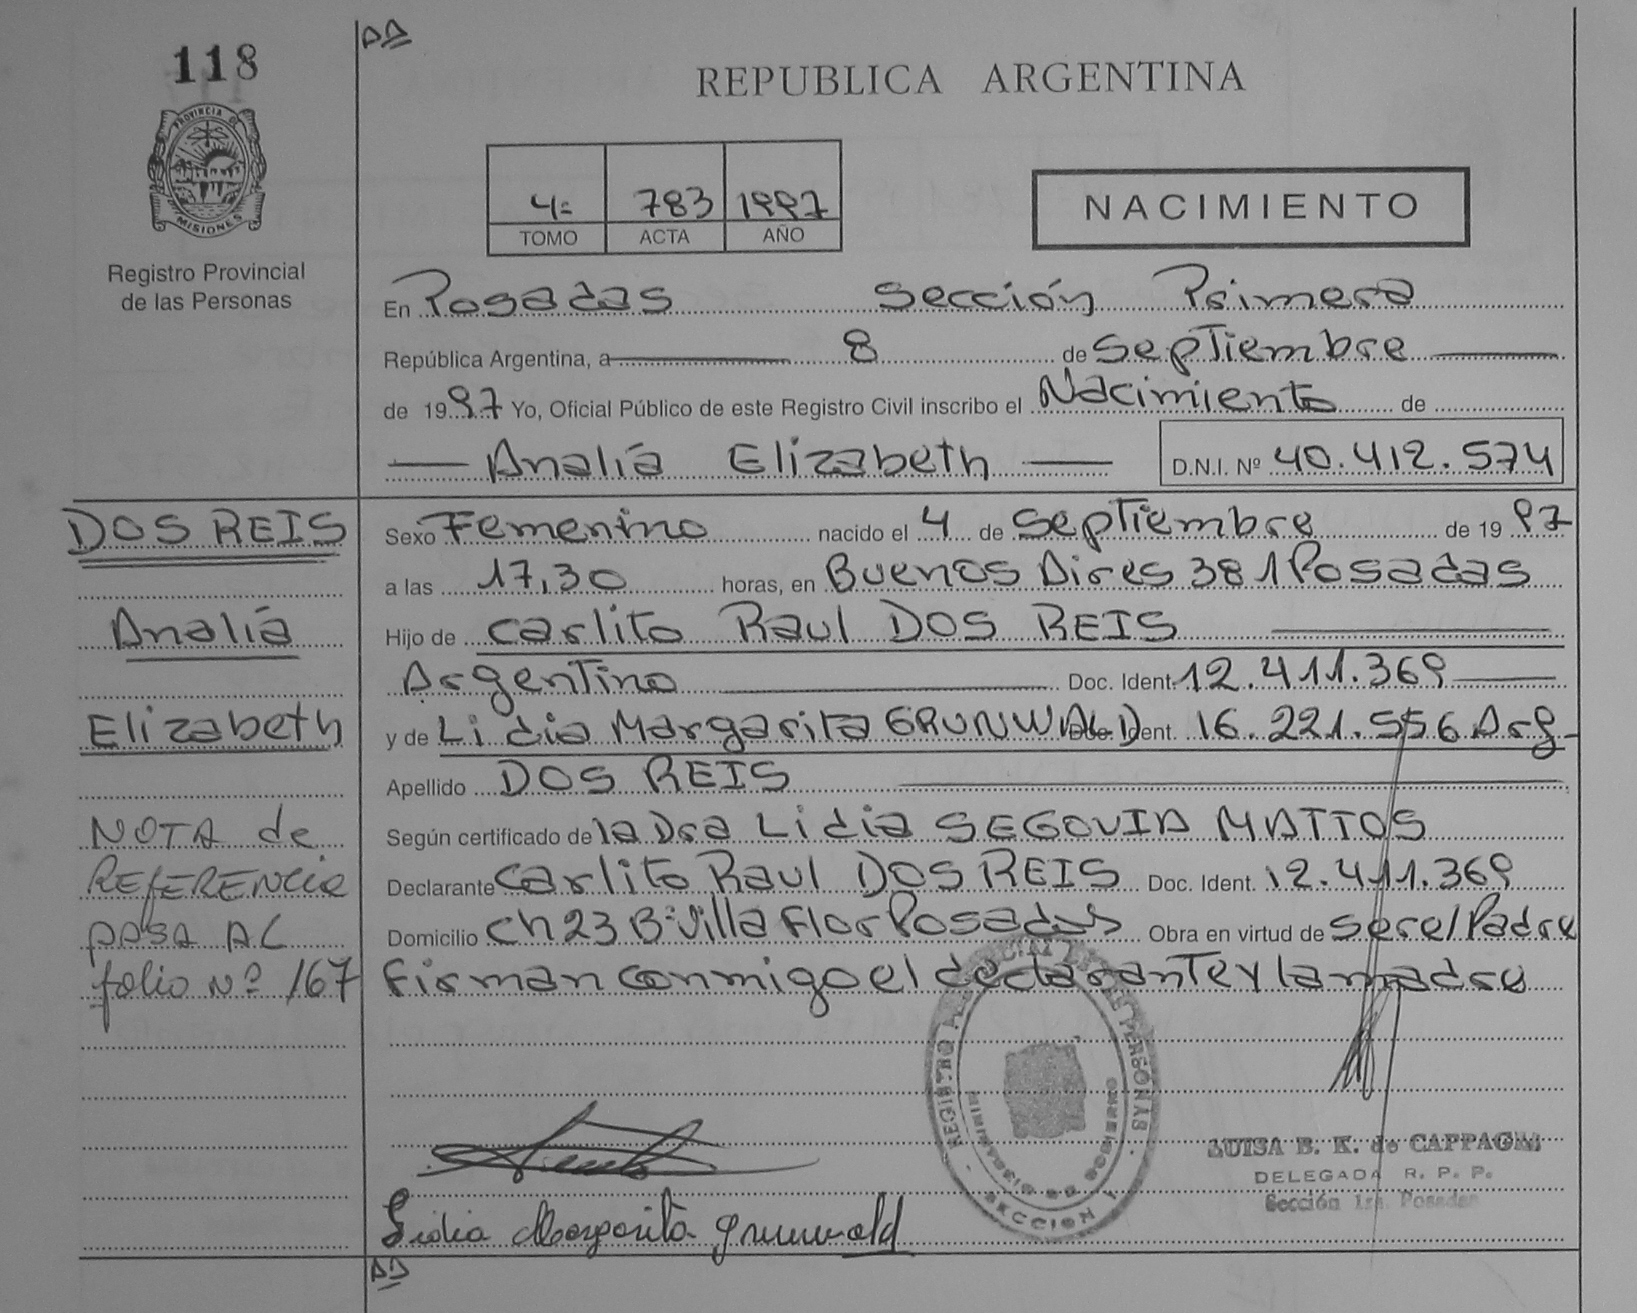 118
REPUBLICA ARGENTINA
PROVINCIA DE
MISIONES
Registro Provincial
de las Personas
4º 783 1997
TOMO ACTA AÑO
NACIMIENTO
En Posadas Sección Primera
República Argentina, a 8 de Septiembre
de 1997 Yo, Oficial Público de este Registro Civil inscribo el Nacimiento de
Analía Elizabeth D.N.I. Nº 40.412.574
DOS REIS
Analía
Elizabeth
NOTA de
REFERENCIA
PASA AL
folio Nº 167
Sexo Femenino nacido el 4 de Septiembre de 1997
a las 17,30 horas, en Buenos Aires 381 Posadas
Hijo de Carlito Raul DOS REIS
Argentino Doc. Ident. 12.411.369
y de Lidia Margarita GRUNWALD Ident. 16.221.556 Arg
Apellido DOS REIS
Según certificado de la Dra Lidia SEGOVIA MATTOS
Declarante Carlito Raul DOS REIS Doc. Ident. 12.411.369
Domicilio Ch 23 Bº Villa Flor Posadas Obra en virtud de ser el Padre
Firman conmigo el declarante y la madre
REGISTRO PROVINCIAL DE LAS PERSONAS
MINISTERIO DE GOBIERNO
SECCION 1
LUISA B. K. de CAPPAGLI
DELEGADA R. P. P.
Sección 1ra. Posadas
Lidia Margarita Grunwald